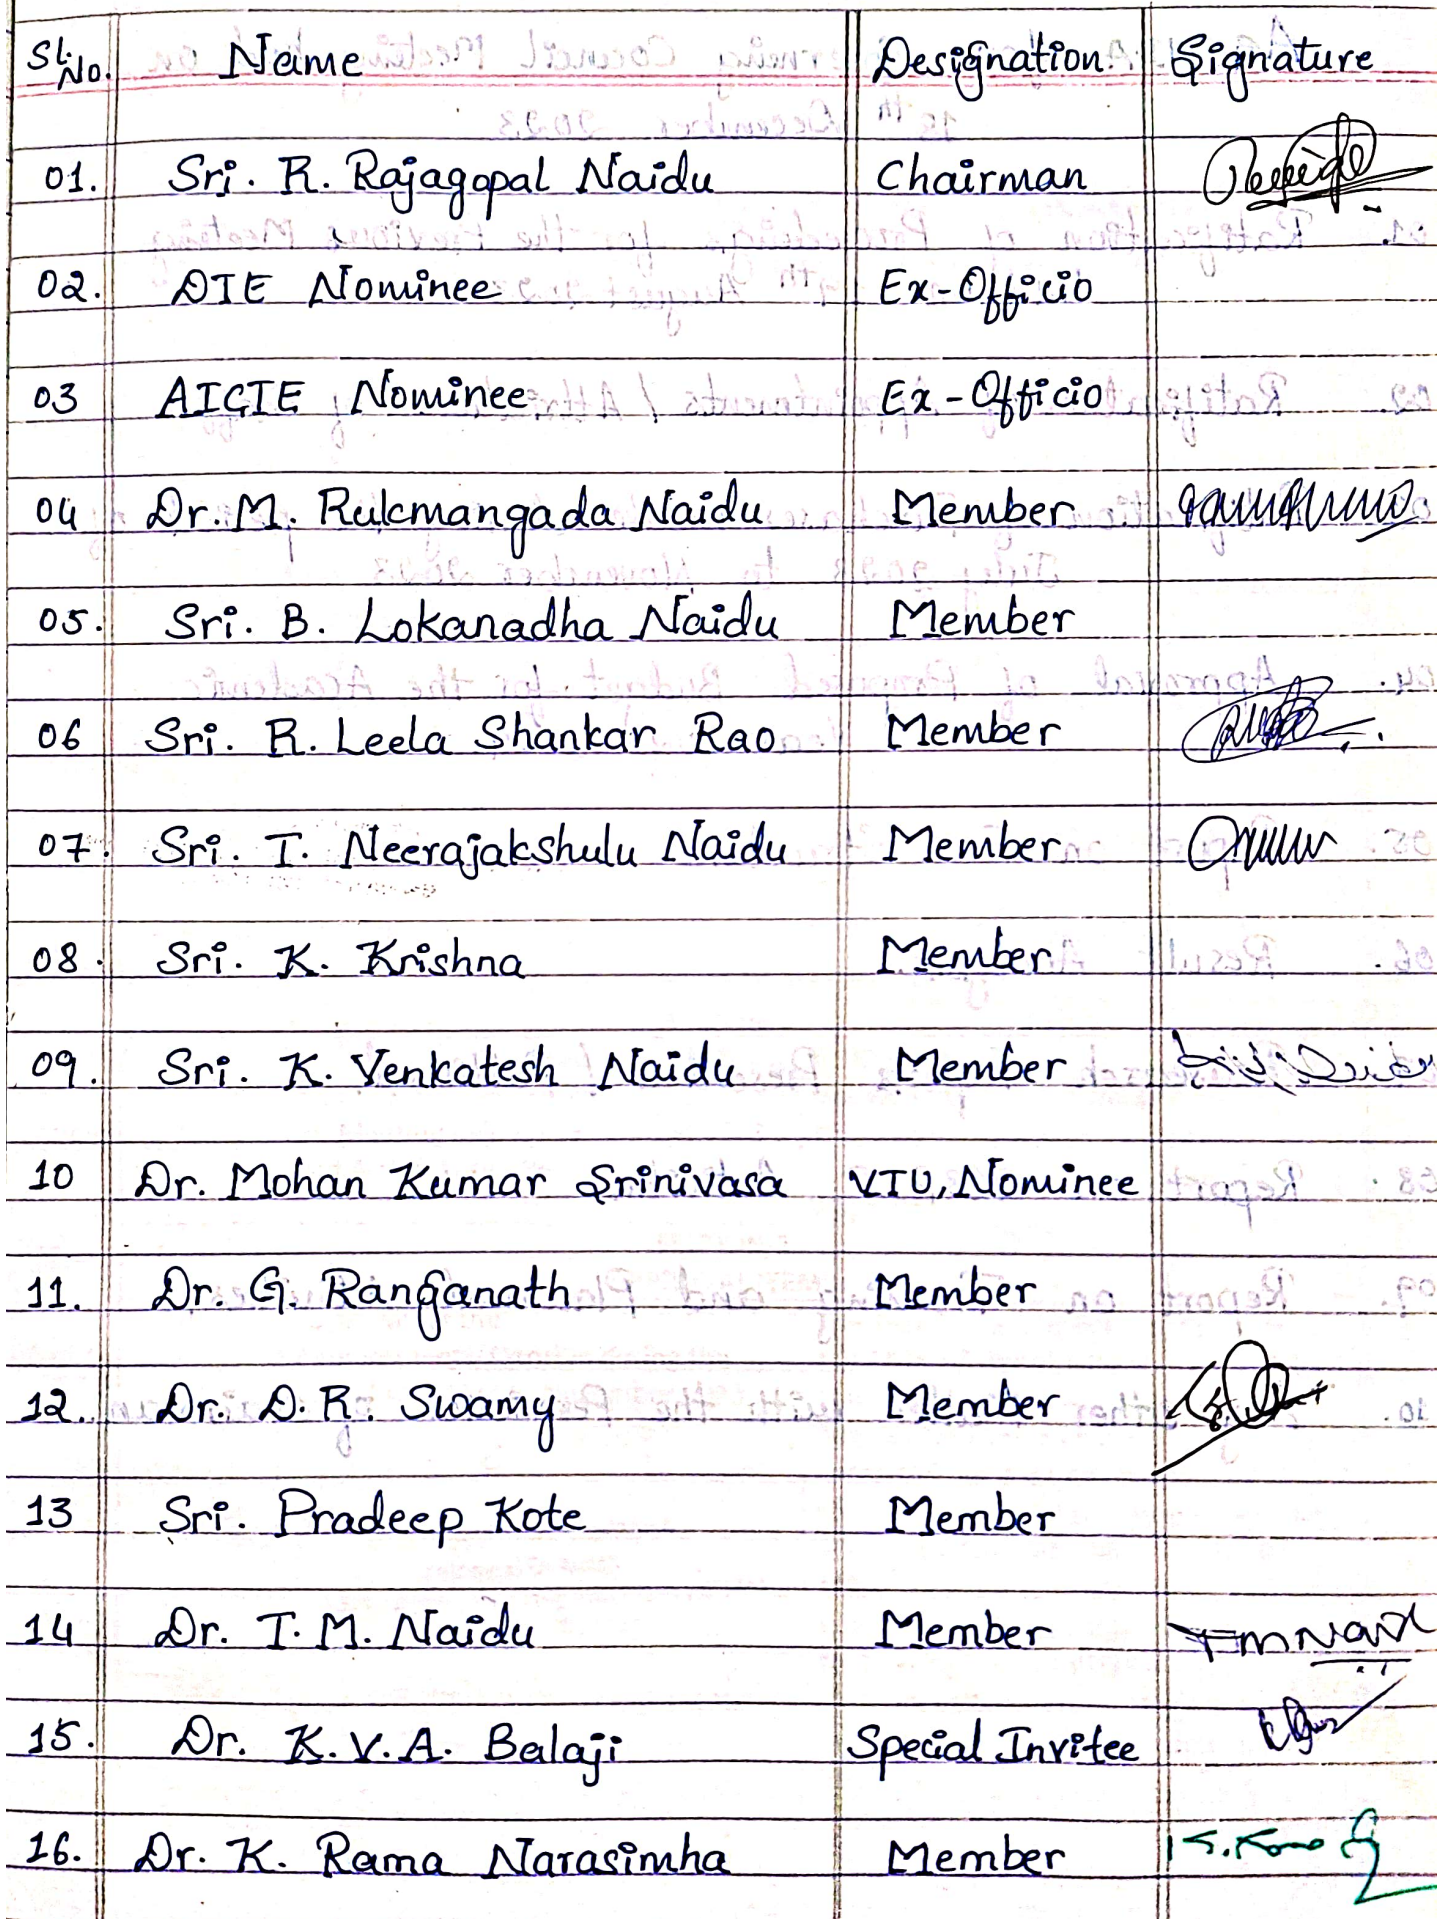 Sl. No. Name Designation Signature
01. Sri. R. Rajagopal Naidu Chairman
02. DTE Nominee Ex-Officio
03 AICTE Nominee Ex-Officio
04 Dr. M. Rukmangada Naidu Member
05. Sri. B. Lokanadha Naidu Member
06 Sri. R. Leela Shankar Rao Member
07. Sri. T. Neerajakshulu Naidu Member
08. Sri. K. Krishna Member
09. Sri. K. Venkatesh Naidu Member
10 Dr. Mohan Kumar Srinivasa VTU, Nominee
11. Dr. G. Ranganath Member
12. Dr. D. R. Swamy Member
13 Sri. Pradeep Kote Member
14 Dr. T. M. Naidu Member
15. Dr. K. V. A. Balaji Special Invitee
16. Dr. K. Rama Narasimha Member